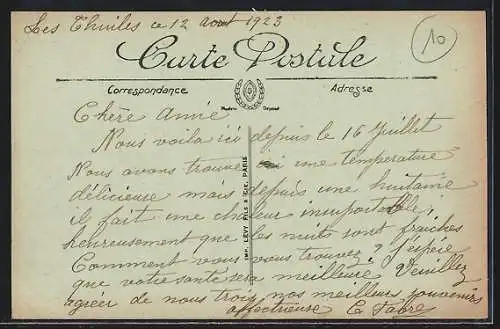 Les Thuiles ce 12 Août 1923
10
Carte Postale
Correspondance
Adresse
Modèle Déposé
Chère Amie
Nous voila ici depuis le 16 Juillet
Nous avons trouvé ici une temperature
délicieuse mais depuis une huitaine
il fait une chaleur insuportable,
heureusement que les nuits sont fraiches
Comment vous trouvez vous ? j'éspère
que votre santé sera meilleure. Veuillez
agréer de nous trois nos meilleurs souvenirs
affectueuse C Fabre
IMP. LÉVY FILS & CIE, PARIS